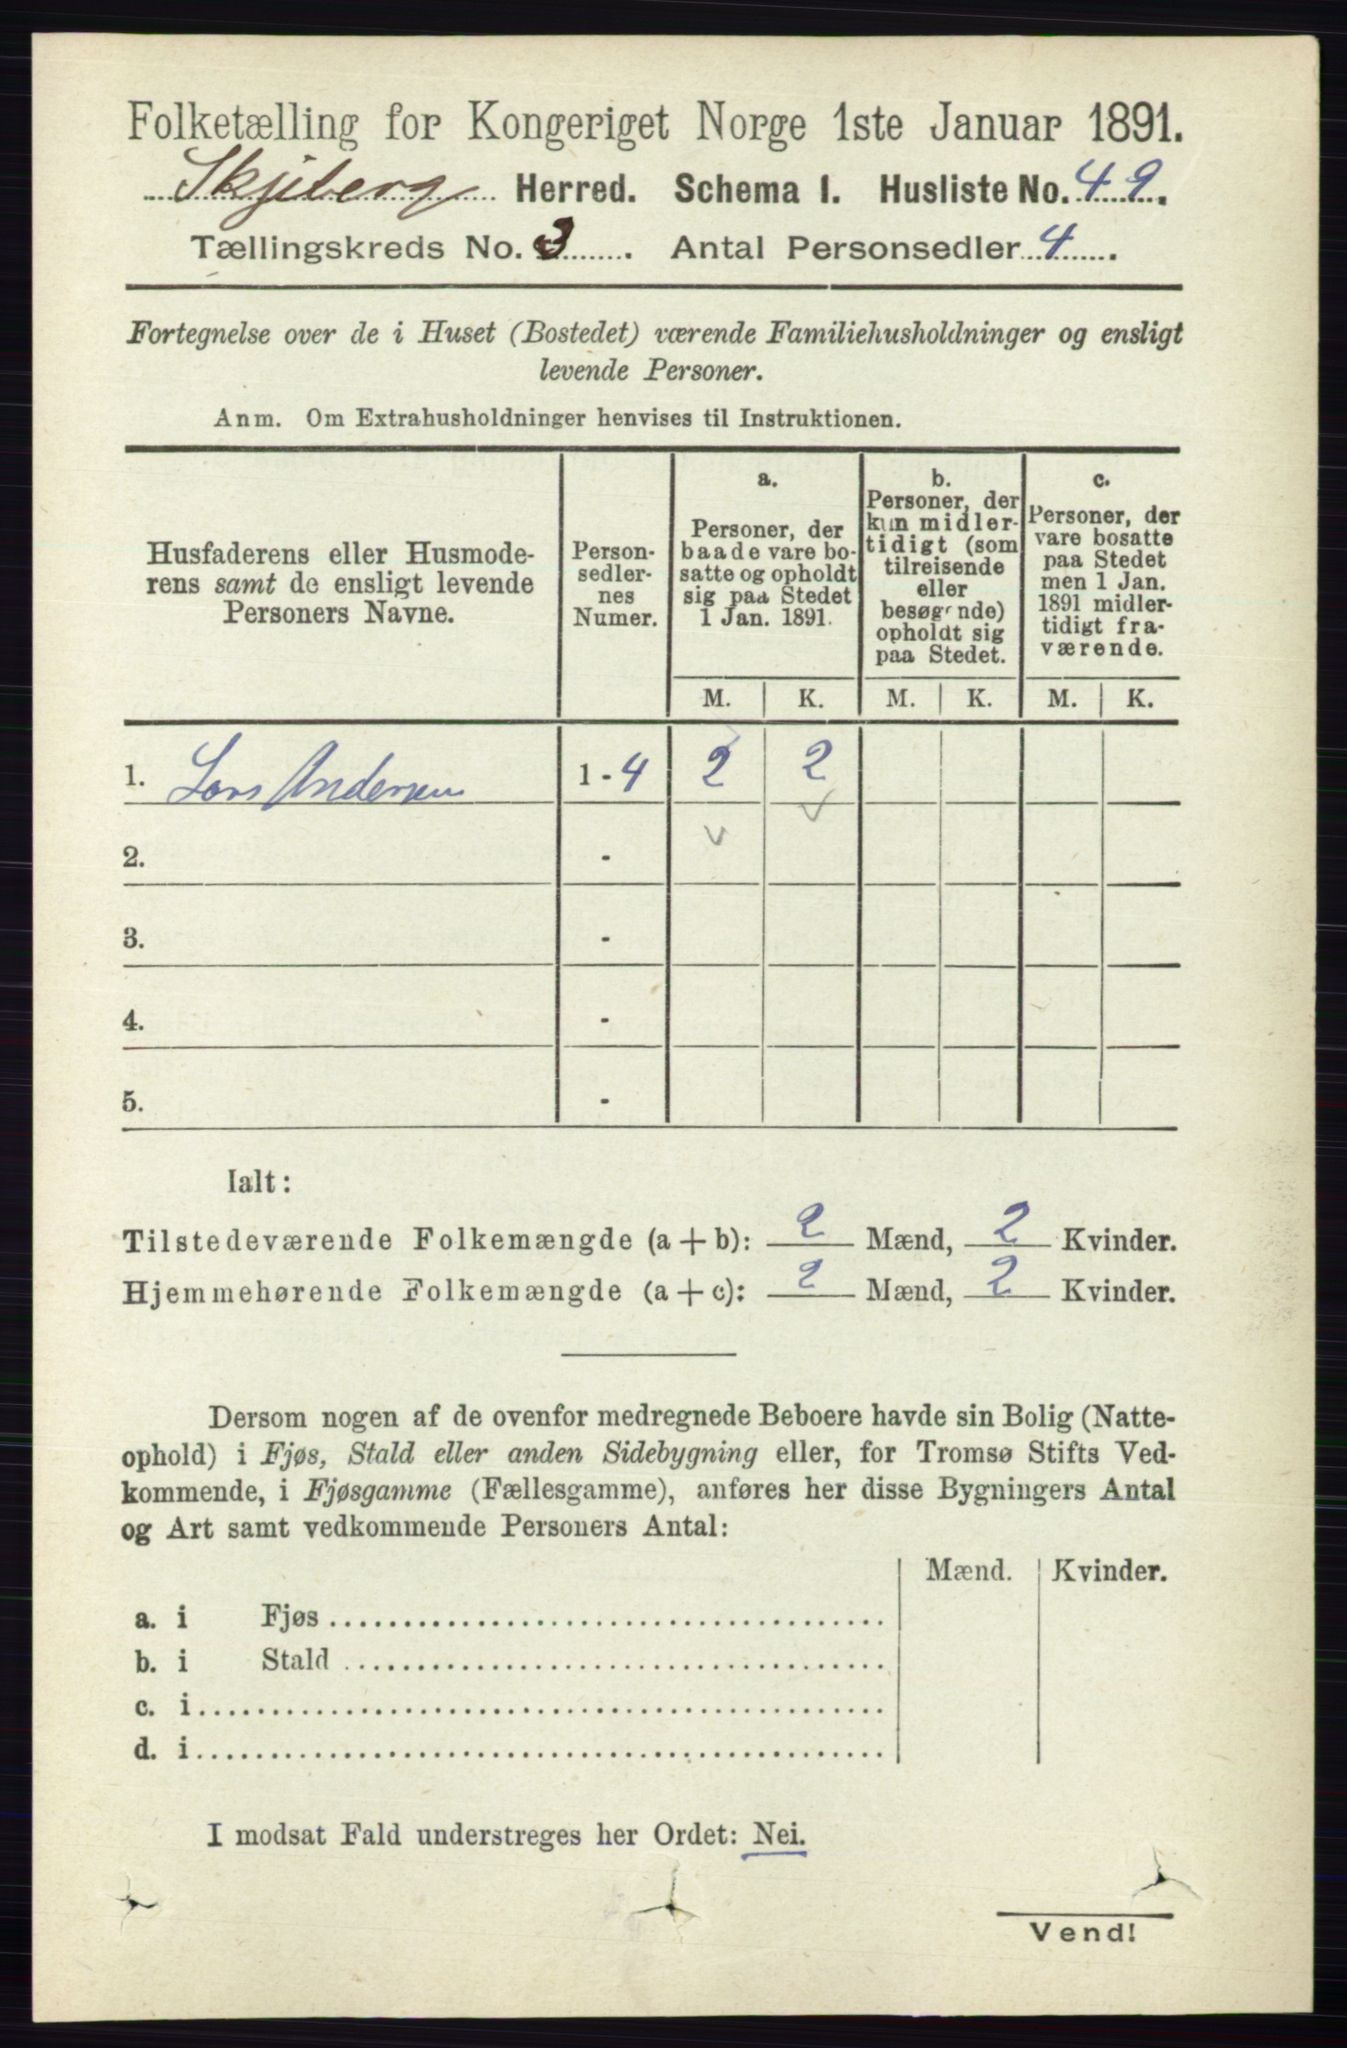 Folketælling for Kongeriget Norge 1ste Januar 1891.
Skjeberg Herred. Schema I. Husliste No. 49.
Tællingskreds No. 3. Antal Personsedler 4.
Fortegnelse over de i Huset (Bostedet) værende Familiehusholdninger og ensligt
levende Personer.
Anm. Om Extrahusholdninger henvises til Instruktionen.
Husfaderens eller Husmode-
rens samt de ensligt levende
Personers Navne.
Person-
sedler-
nes
Numer.
a.
Personer, der
baade vare bo-
satte og opholdt
sig paa Stedet
1 Jan. 1891.
b.
Personer, der
kun midler-
tidigt (som
tilreisende
eller
besøgende)
opholdt sig
paa Stedet.
c.
Personer, der
vare bosatte
paa Stedet
men 1 Jan.
1891 midler-
tidigt fra-
værende.
M. K. M. K. M. K.
1. Lars Andersen 1 - 4 2 2
2. -
3. -
4. -
5. -
Ialt:
Tilstedeværende Folkemængde (a + b): 2 Mænd, 2 Kvinder.
Hjemmehørende Folkemængde (a + c): 2 Mænd, 2 Kvinder.
Dersom nogen af de ovenfor medregnede Beboere havde sin Bolig (Natte-
ophold) i Fjøs, Stald eller anden Sidebygning eller, for Tromsø Stifts Ved-
kommende, i Fjøsgamme (Fællesgamme), anføres her disse Bygningers Antal
og Art samt vedkommende Personers Antal:
Mænd. Kvinder.
a. i Fjøs
b. i Stald
c. i
d. i
I modsat Fald understreges her Ordet: Nei.
Vend!